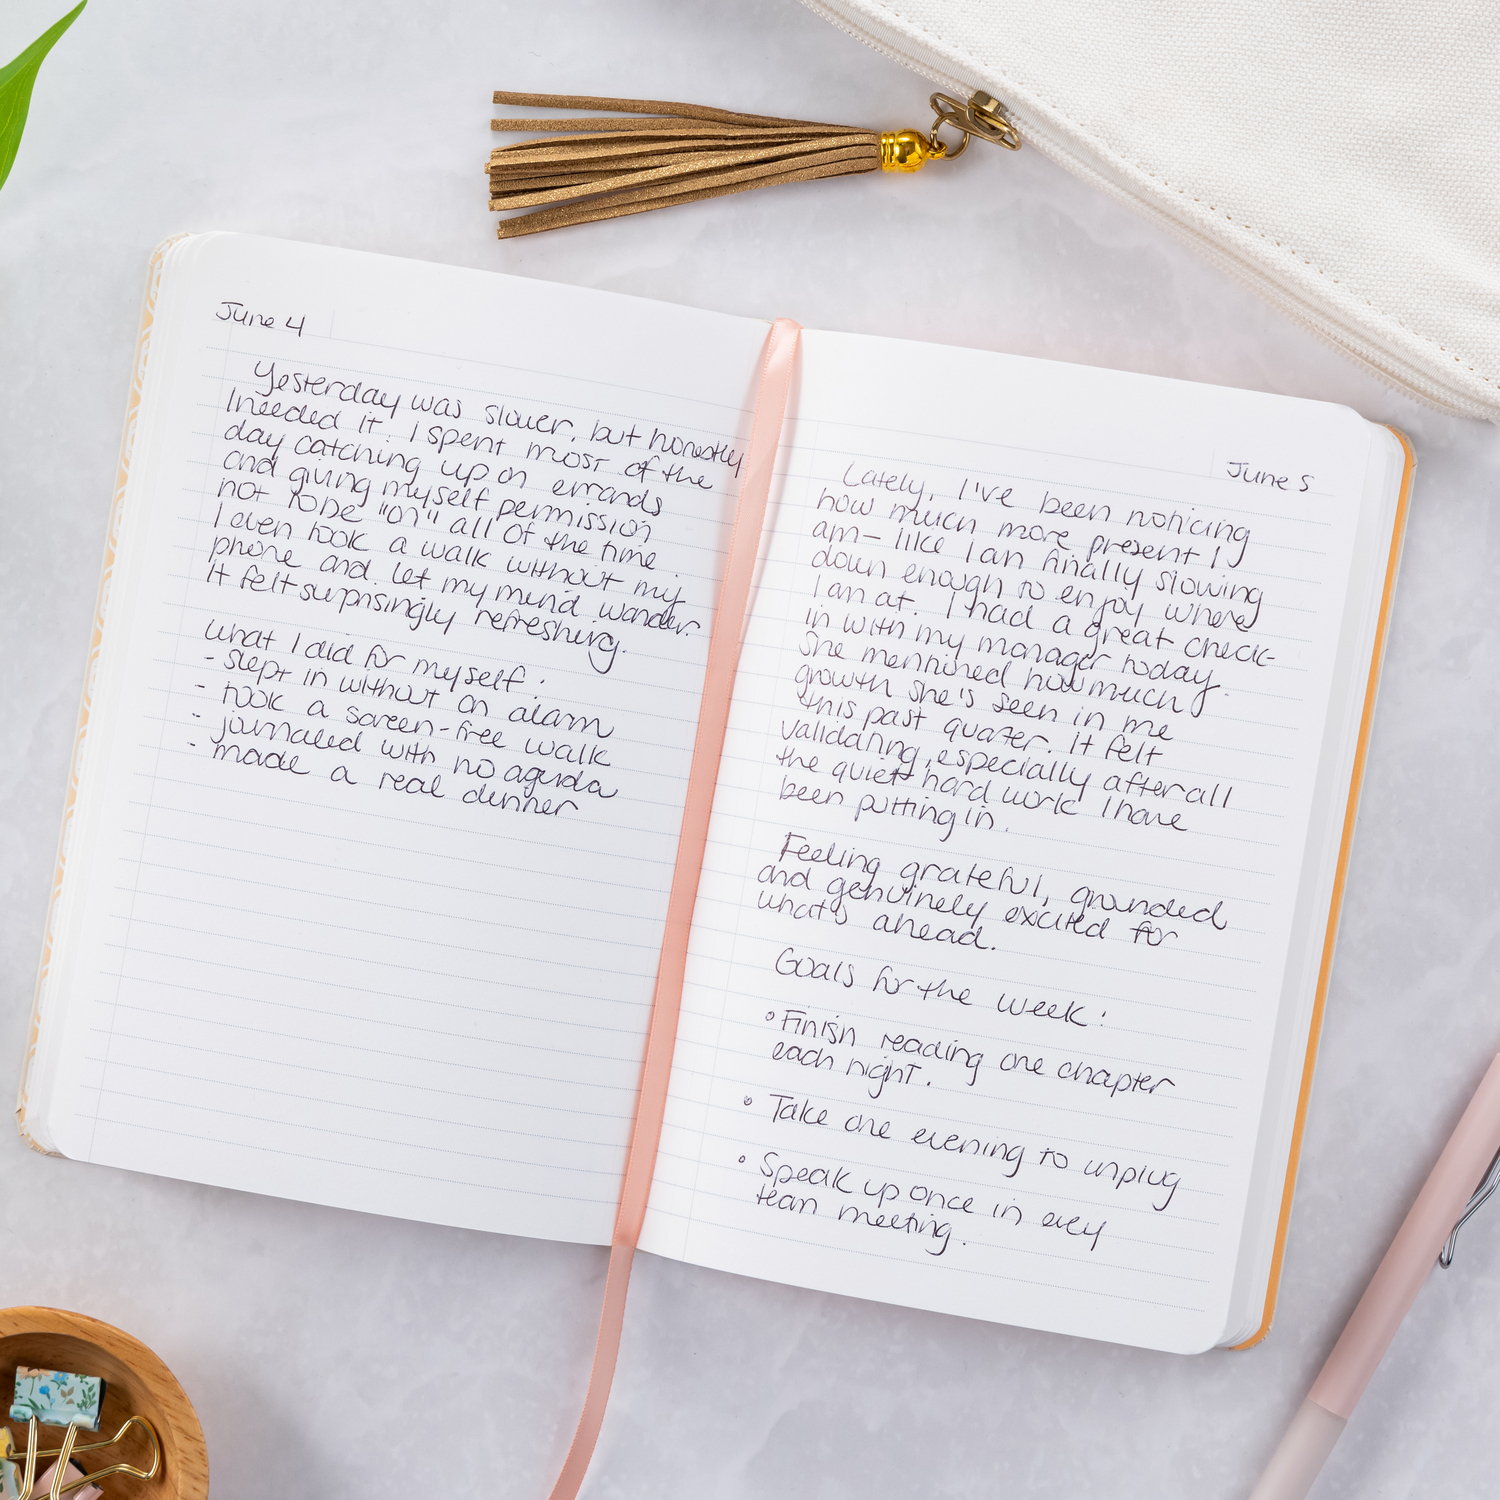 June 4
Yesterday was slower, but honestly
I needed it. I spent most of the
day catching up on errands
and giving myself permission
not to be "on" all of the time.
I even took a walk without my
phone and let my mind wander.
It felt surprisingly refreshing.
What I did for myself:
- slept in without an alarm
- took a screen-free walk
- journaled with no agenda
- made a real dinner
June 5
Lately, I've been noticing
how much more present I
am - like I am finally slowing
down enough to enjoy where
I am at. I had a great check-
in with my manager today.
She mentioned how much
growth she's seen in me
this past quater. It felt
validating, especially after all
the quiet hard work I have
been putting in.
Feeling grateful, grounded
and genuinely excited for
what's ahead.
Goals for the week:
• Finish reading one chapter
each night.
• Take one evening to unplug
• Speak up once in every
team meeting.